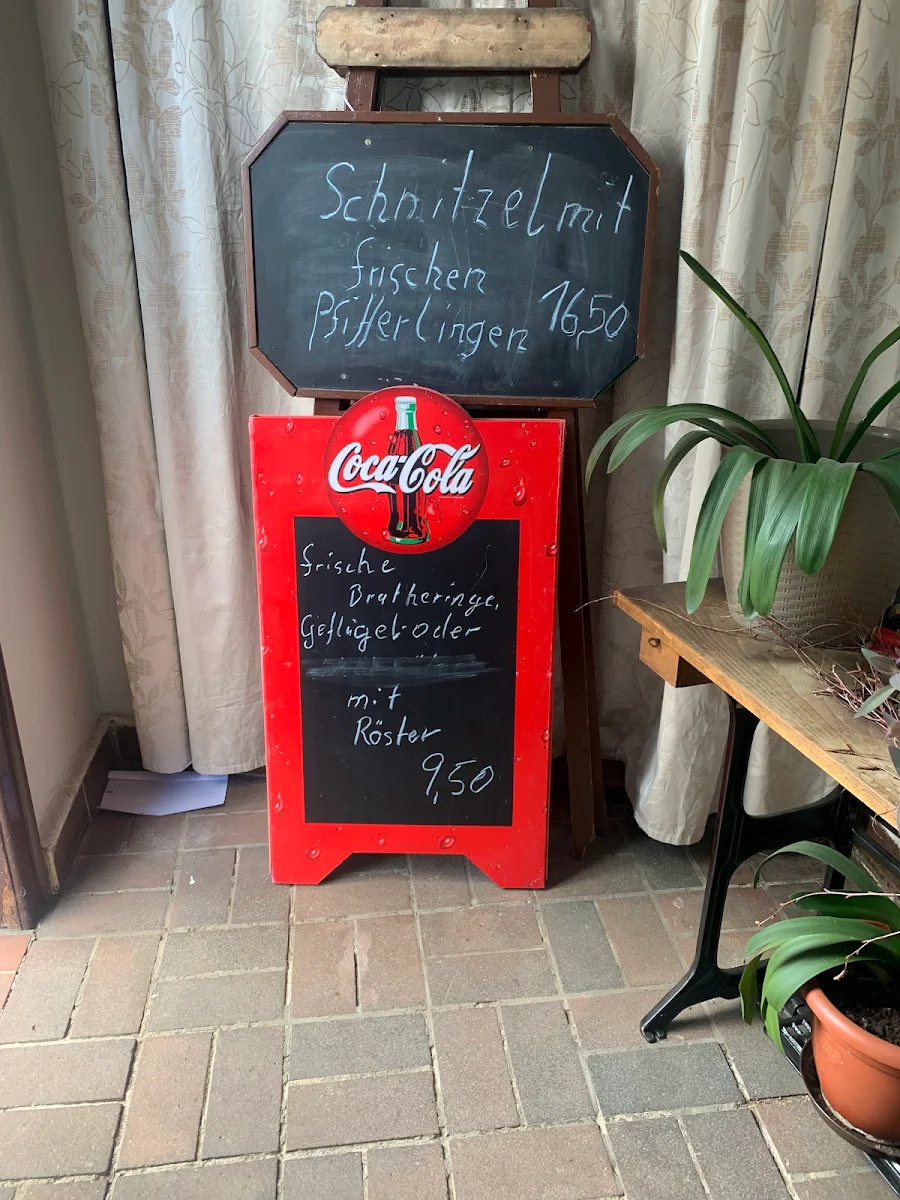 Schnitzel mit
frischen
Pfifferlingen 16,50
Coca-Cola
frische
Bratheringe,
Geflügel oder
mit
Röster
9,50